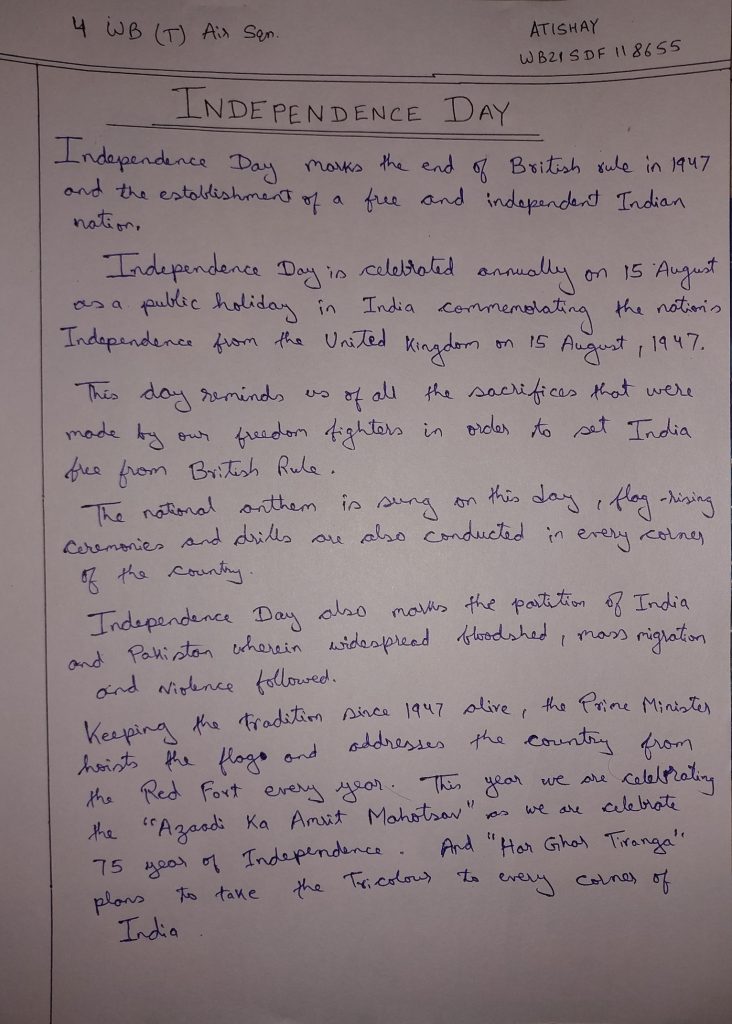 4 WB (T) Air Sqn.
ATISHAY
WB21SDF118655
INDEPENDENCE DAY
Independence Day marks the end of British rule in 1947
and the establishment of a free and independent Indian
nation.
Independence Day is celebrated annually on 15 August
as a public holiday in India commemorating the nation's
Independence from the United Kingdom on 15 August, 1947.
This day reminds us of all the sacrifices that were
made by our freedom fighters in order to set India
free from British Rule.
The national anthem is sung on this day, flag-rising
ceremonies and drills are also conducted in every corner
of the country.
Independence Day also marks the partition of India
and Pakistan wherein widespread bloodshed, mass migration
and violence followed.
Keeping the tradition since 1947 alive, the Prime Minister
hoists the flag and addresses the country from
the Red Fort every year. This year we are celebrating
the "Azaadi Ka Amrit Mahotsav" as we are celebrate
75 year of Independence. And "Har Ghar Tiranga"
plans to take the Tricolour to every corner of
India.